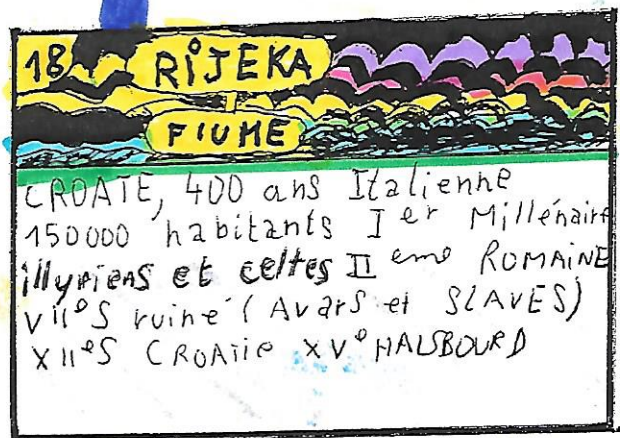 18 RIJEKA
FIUME
CROATE, 400 ans Italienne
150000 habitants Ier Millénaire
illyriens et celtes IIeme ROMAINE
VIIeS ruiné (Avars et SLAVES)
XIIeS CROATie XVe HALSBOURD